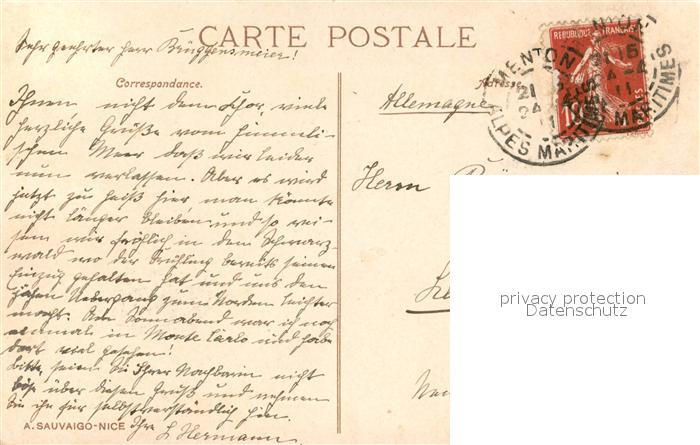 CARTE POSTALE
Sehr geehrter Herr Brüggensmeier!
Correspondance.
Adresse
Ihnen nicht dem Chor, viele
herzliche Grüße vom himmli-
schen Meer daß wir leider
nun verlassen. Aber es wird
jetzt zu heiß hier man könnte
nicht länger bleiben und so rei-
sen wir fröhlich in den Schwarz-
wald wo der Frühling bereits seinen
Einzug gehalten hat und uns den
jähen Uebergang zum Norden leichter
macht. Am Sonnabend war ich noch
einmal in Monte Carlo und habe
dort viel gesehen!
Bitte, seien Sie Ihrer Nachbarin nicht
böse über diesen Gruß und nehmen
Sie ihn für selbstverständlich hin.
Ihre L. Hermann
A. SAUVAIGO-NICE
Allemagne
Herrn
REPUBLIQUE FRANÇAISE
10
MENTON
21 15
24 -4
11
ALPES MARITIMES
privacy protection
Datenschutz